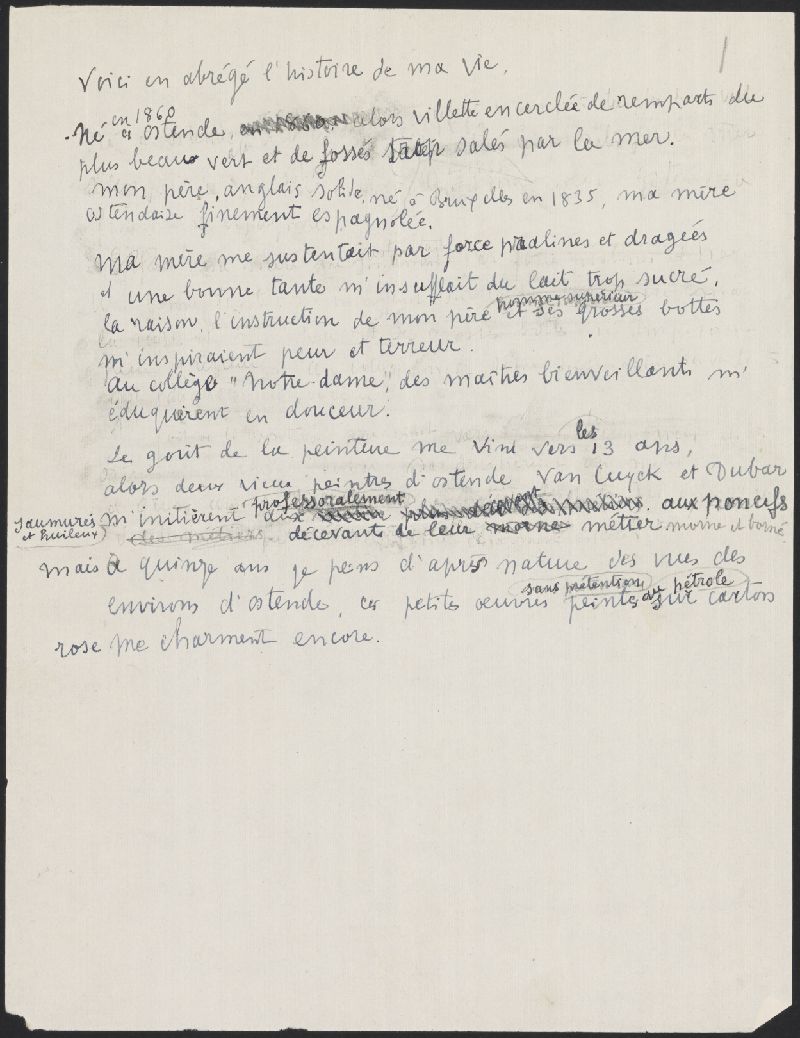 1
Voici en abrégé l'histoire de ma vie.
en 1860
Né à Ostende, alors villette encerclée de remparts du
plus beau vert et de fossés salés par la mer.
mon père, anglais solide, né à Bruxelles en 1835, ma mère
ostendaise finement espagnolée.
Ma mère me sustentait par force pralines et dragées
et une bonne tante m'insufflait du lait trop sucré.
homme supérieur
la raison, l'instruction de mon père et ses grosses bottes
m'inspiraient peur et terreur.
Au collège "Notre-dame", des maîtres bienveillants m'
éduquèrent en douceur.
Le goût de la peinture me vint vers les 13 ans,
alors deux vieux peintres d'ostende Van Cuyck et Dubar
saumurés et huileux
professoralement
m'initièrent aux poncifs
des métiers décevants de leur morne métier morne et borné
mais à quinze ans je peins d'après nature des vues des
sans prétention au pétrole
environs d'ostende, ces petites œuvres peintes sur cartons
rose me charment encore.